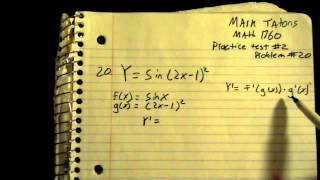 Mark Tatons
Math 1760
Practice test #2
Problem #20
20. Y = Sin(2x-1)²
f(x) = sinx
g(x) = (2x-1)²
Y' = f'(g(x)) · g'(x)
Y' =